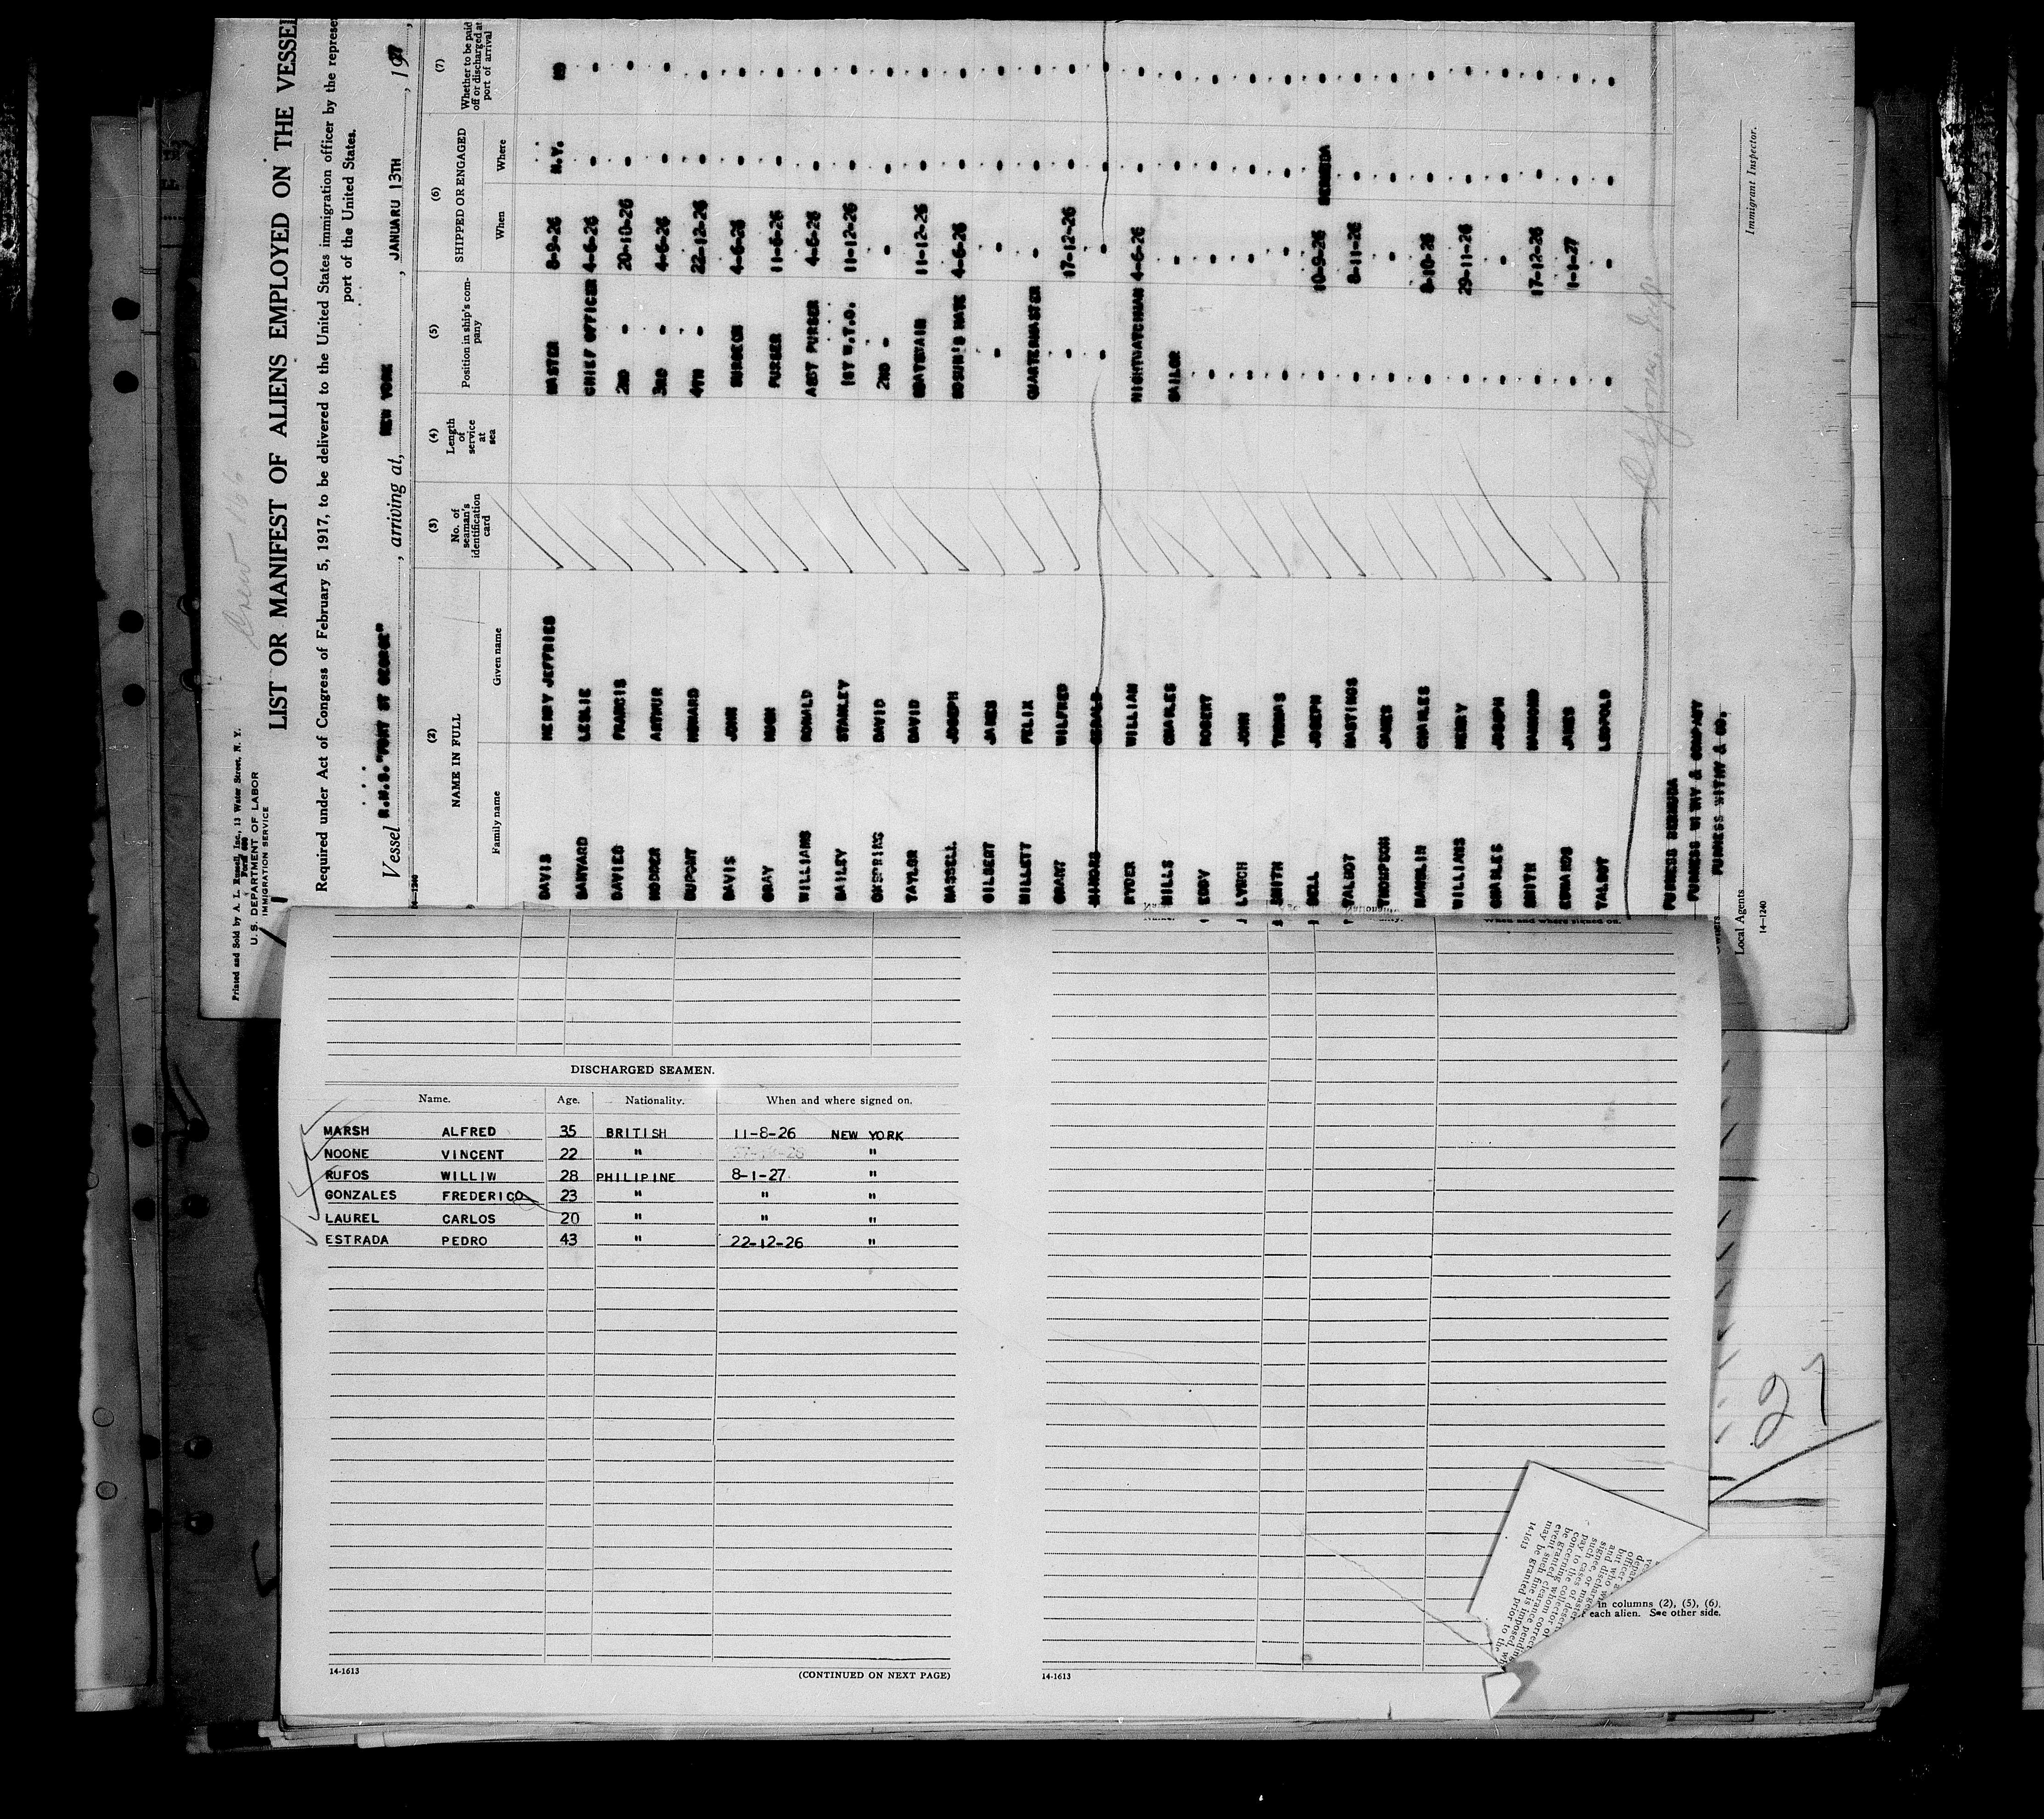 Crew 166
Printed and Sold by A. L. Russell, Inc., 13 Water Street, N. Y.
Form 680
U. S. DEPARTMENT OF LABOR
IMMIGRATION SERVICE
LIST OR MANIFEST OF ALIENS EMPLOYED ON THE VESSEL
Required under Act of Congress of February 5, 1917, to be delivered to the United States immigration officer by the represe
port of the United States.
Vessel R.M.S."FORT ST GEORGE" , arriving at, NEW YORK , JANUARU 13TH , 1927
14—1240
(2) (3) (4) (5) (6) (7)
NAME IN FULL No. of seaman's identification card Length of service at sea Position in ship's company SHIPPED OR ENGAGED Whether to be paid off or discharged at port of arrival
Family name Given name When Where
DAVIS HENRY JEFFRIES MASTER 8-9-26 N.Y. NO
BANYARD LESLIE CHIEF OFFICER 4-6-26 " "
DAVIES FRANCIS 2ND " 20-10-26 " "
HODDER ARTHUR 3RD " 4-6-26 " "
DUPONT HOWARD 4TH " 22-12-26 " "
DAVIS JOHN SURGEON 4-6-26 " "
GRAY HUGH PURSER 11-6-26 " "
WILLIAMS RONALD ASST PURSER 4-6-26 " "
BAILEY STANLEY 1ST W.T.O. 11-12-26 " "
DAVID 2ND " " " "
TAYLOR DAVID 11-12-26 " "
HASSELL JOSEPH BOSUN'S MATE 4-6-26 " "
GILBERT JAMES " " " "
WILLETT FELIX QUARTERMASTER " " "
GRANT WILFRED " 17-12-26 " "
MINORS GERALD " " " "
RYDER WILLIAM NIGHTWATCHMAN 4-6-26 " "
MILLS CHARLES SAILOR " " "
EDDY ROBERT " " " "
LYNCH JOHN " " " "
SMITH THOMAS " " " "
BELL JOSEPH " 10-9-26 BERMUDA "
TALBOT HASTINGS " 8-11-26 " "
THOMPSON JAMES " " " "
HAMBLIN CHARLES " 8-10-26 " "
WILLIAMS HENRY " 29-11-26 " "
CHARLES JOSEPH " " " "
SMITH HAMMOND " 17-12-26 " "
EDWARDS JAMES " 1-1-27 " "
TALBOT LEOPOLD " " " "
FURNESS BERMUDA
FURNESS WITHY & COMPANY
Owners
Local Agents FURNESS WITHY & CO.
14—1240
Immigrant Inspector.
When and where signed on.
DISCHARGED SEAMEN.
Name. Age. Nationality. When and where signed on.
MARSH ALFRED 35 BRITISH 11-8-26 NEW YORK
NOONE VINCENT 22 " "
RUFOS WILLIW 28 PHILIPINE 8-1-27. "
GONZALES FREDERICO 23 " " "
LAUREL CARLOS 20 " " "
ESTRADA PEDRO 43 " 22-12-26 "
14-1613 (CONTINUED ON NEXT PAGE)
14-1613
27
in columns (2), (5), (6),
each alien. See other side.
officer a
but who w
and discharged
signee or master
such cases of deser
pay to the collector of
concerning whom correct
be granted clearance pendin
event such fine is imposed
may be granted prior to the
14-1613